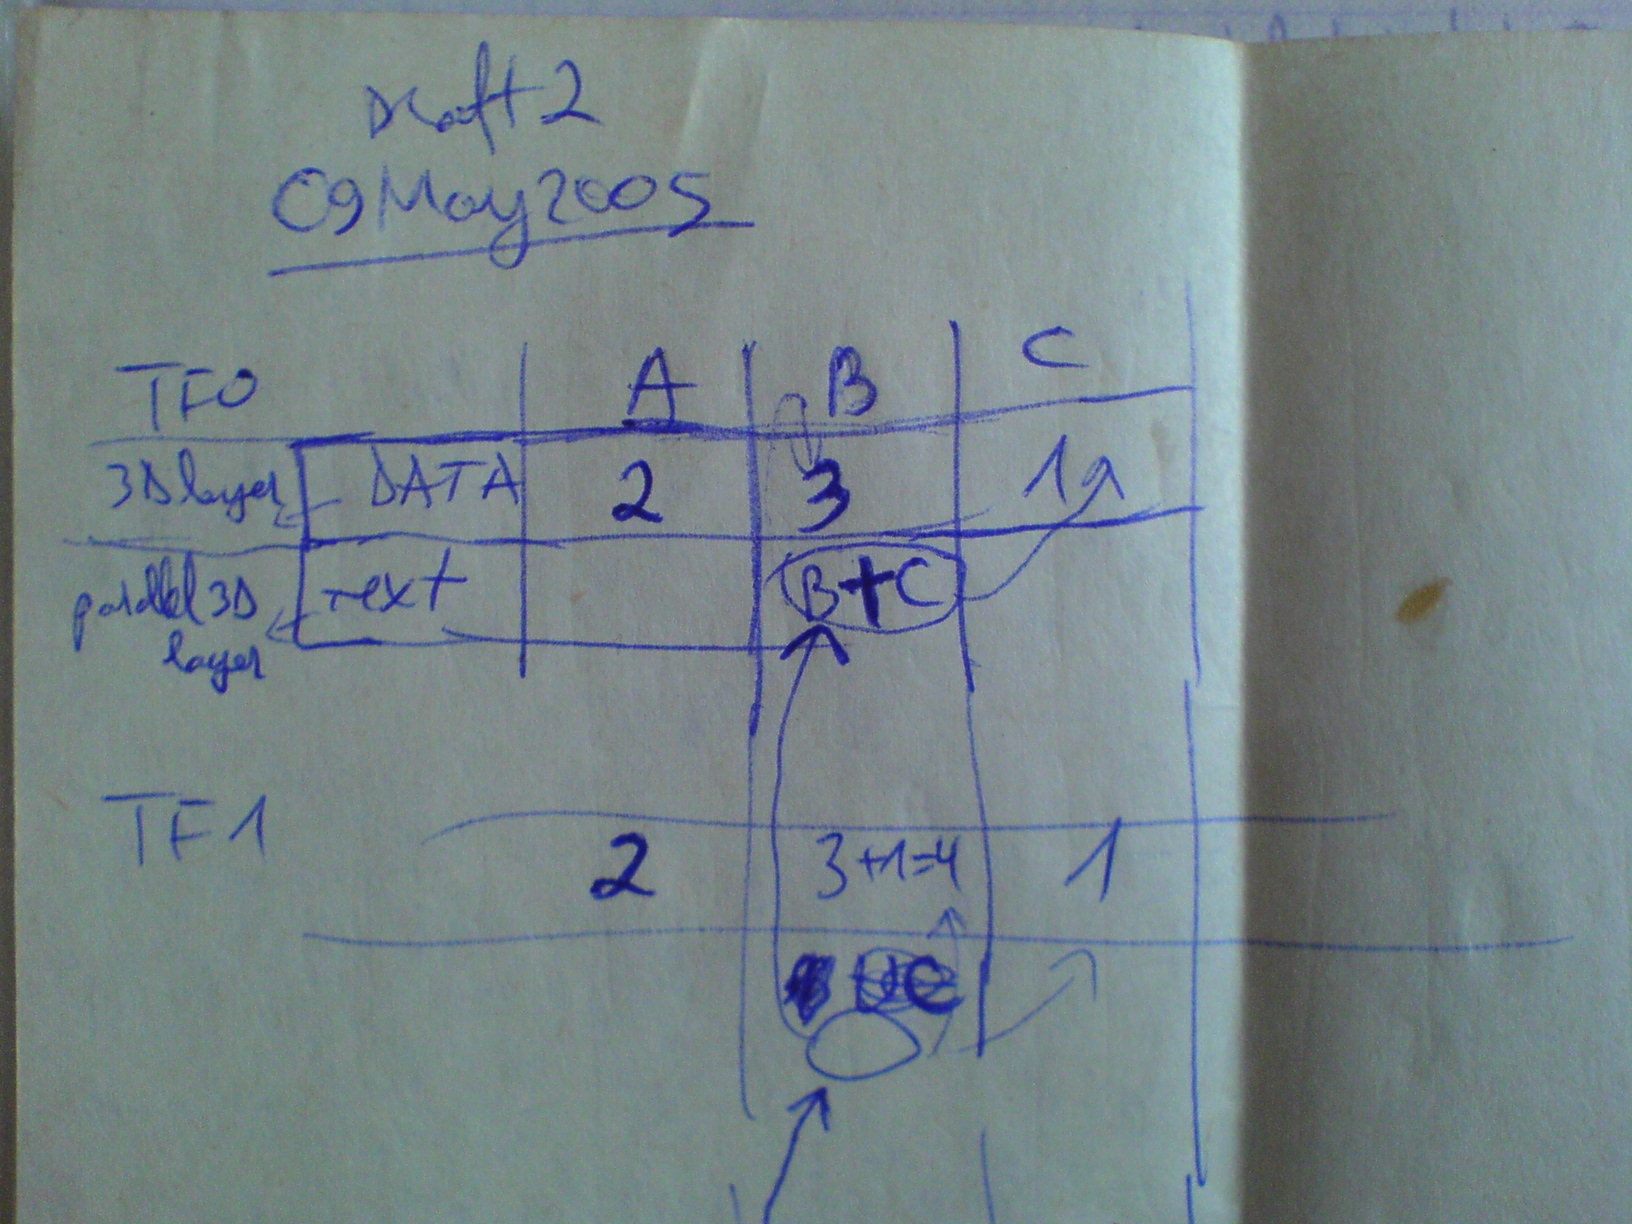 Draft 2
09 May 2005
TF0 A B C
3D layer DATA 2 3 1
parallel 3D layer text B+C
TF1
2 3+1=4 1
C